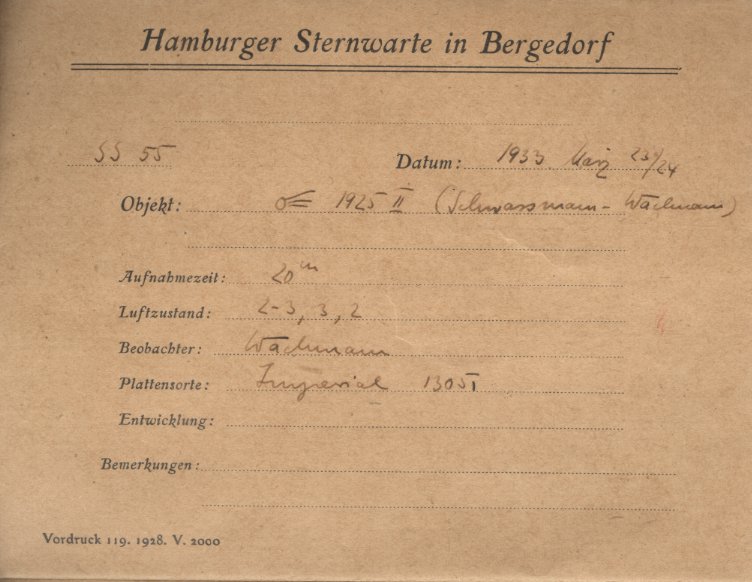 Hamburger Sternwarte in Bergedorf
SS 55 Datum: 1933 März 23/24
Objekt: ☄ 1925 II (Schwassmann-Wachmann)
Aufnahmezeit: 20m
Luftzustand: 2-3, 3, 2
Beobachter: Wachmann
Plattensorte: Imperial 1305
Entwicklung:
Bemerkungen:
Vordruck 119. 1928. V. 2000